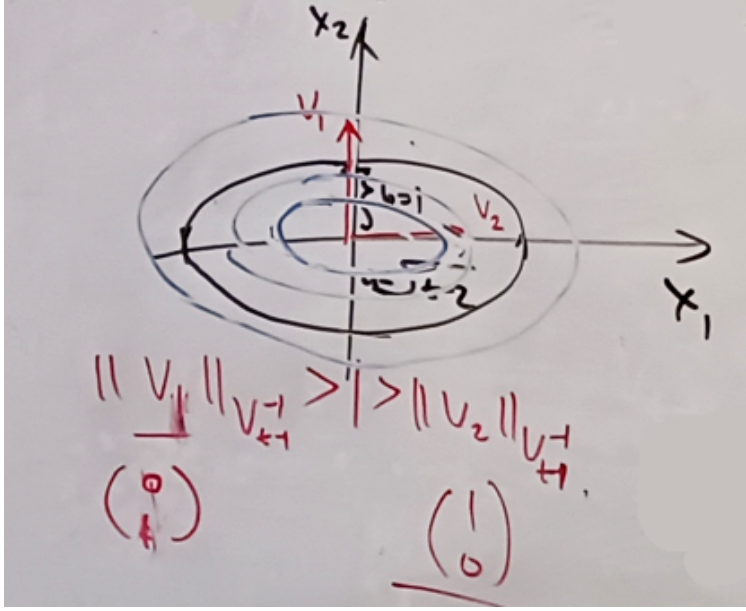 x₂
V₁
b=1
V₂
2
x₁
|| V₁ ||_{V_{t-1}^{-1}} > 1 > || V₂ ||_{V_{t-1}^{-1}}.
(0 1) (1 0)